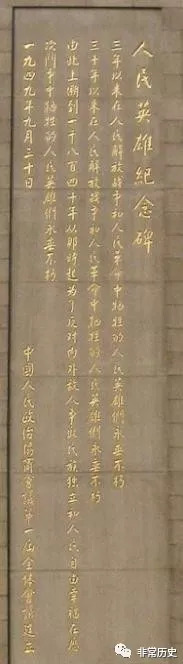 人民英雄紀念碑
三年以来在人民解放战争和人民革命中牺牲的人民英雄們永垂不朽
三十年以来在人民解放战争和人民革命中牺牲的人民英雄們永垂不朽
由此上溯到一千八百四十年从那時起为了反对内外敌人争取民族独立和人民自由幸福在歷
次鬥争中牺牲的人民英雄們永垂不朽
一九四九年九月三十日
中國人民政治協商會議第一届全体會議建立
非常历史